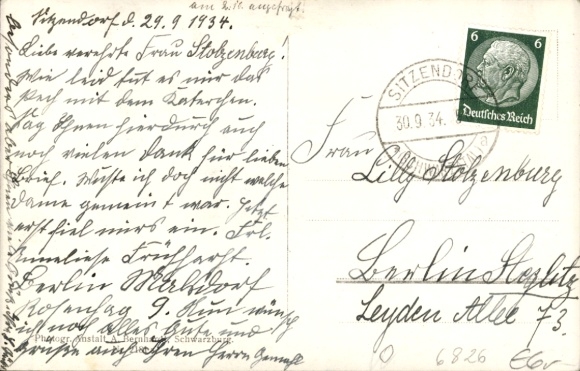 am 2.10. angefragt.
Sitzendorf d. 29.9 1934.
Liebe verehrte Frau Stolzenburg.
Wie leid tut es mir das
Pech mit dem Katerchen.
Sag Ihnen hierdurch auch
noch vielen Dank für lieben
Brief. Wußte ich doch nicht welche
Dame gemeint war. Jetzt
erst fiel mirs ein. Frl.
Anneliese Frühherst.
Berlin Malsdorf
Rosenhag 9. Nun wünsch
ich noch Alles Gute und
Grüße auch Ihren Herrn Gemahl
Photogr. Anstalt A. Bernhardt, Schwarzburg.
6 6
Deutsches Reich
SITZENDORF
30.9.34.
Frau
Lilly Stolzenburg
Berlin Steglitz
Leyden Allee 73.
6826